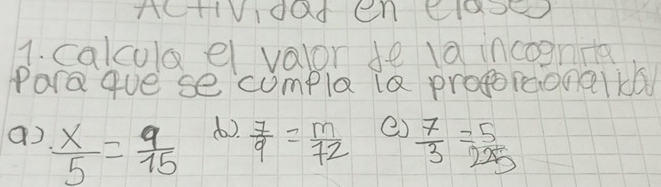 Actividad en clases
1. calcula el valor de la incognita
Para que se cumpla la proporcionalidad
a). x/5 = 9/15 b). 7/9 = m/72 c) 7/3 = 5/